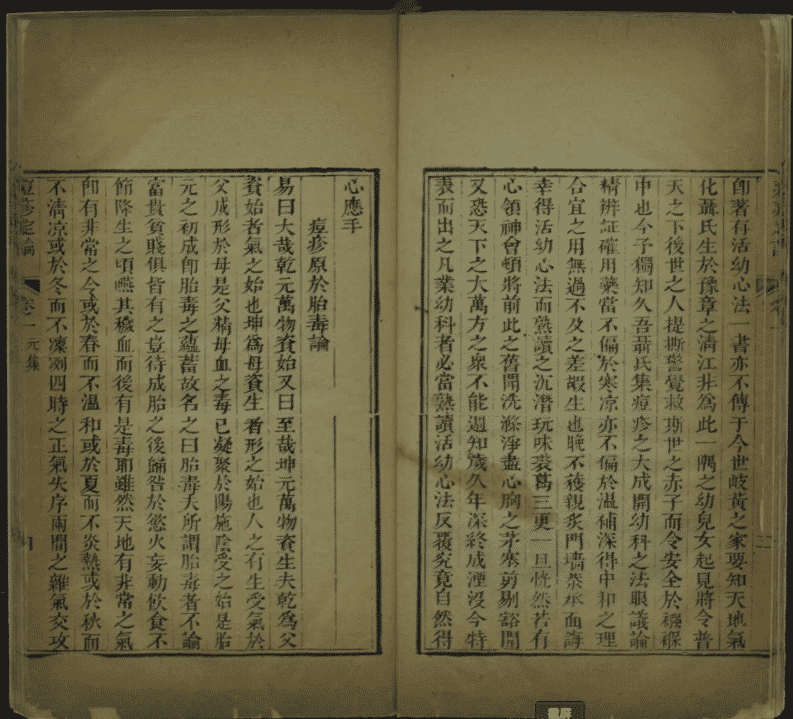 卽著有活幼心法一書亦不傳于今世岐黃之家要知天地氣
化聶氏生於豫章之淸江非爲此一隅之幼兒女起見將令普
天之下後世之人提撕警覺救斯世之赤子而令安全於襁褓
中也今予獨知久吾聶氏集痘疹之大成開幼科之法眼議論
精辨証確用藥當不偏於寒凉亦不偏於溫補深得中和之理
合宜之用無過不及之差嘏生也晚不獲親炙門墻恭承面誨
幸得活幼心法而熟讀之沉潛玩味裘葛三更一旦恍然若有
心領神會頓將前此之舊聞洗滌淨盡心胸之茅塞剪剔豁開
又恐天下之大萬方之衆不能遍知歲久年深終成湮沒今特
表而出之凡業幼科者必當熟讀活幼心法反覆究竟自然得
心應手
痘疹原於胎毒論
易曰大哉乾元萬物資始又曰至哉坤元萬物資生夫乾爲父
資始者氣之始也坤爲母資生者形之始也人之有生受氣於
父成形於母是父精母血之毒已凝聚於陽施陰受之始是胎
元之初成卽胎毒之蘊蓄故名之曰胎毒夫所謂胎毒者不論
富貴貧賤俱皆有之豈待成胎之後歸咎於慾火妄動飲食不
節降生之頃嚥其穢血而後有是毒耶雖然天地有非常之氣
卽有非常之令或於春而不溫和或於夏而不炎熱或於秋而
不淸凉或於冬而不凜冽四時之正氣失序兩間之雜氣交攻
痘疹定論 卷一 元集